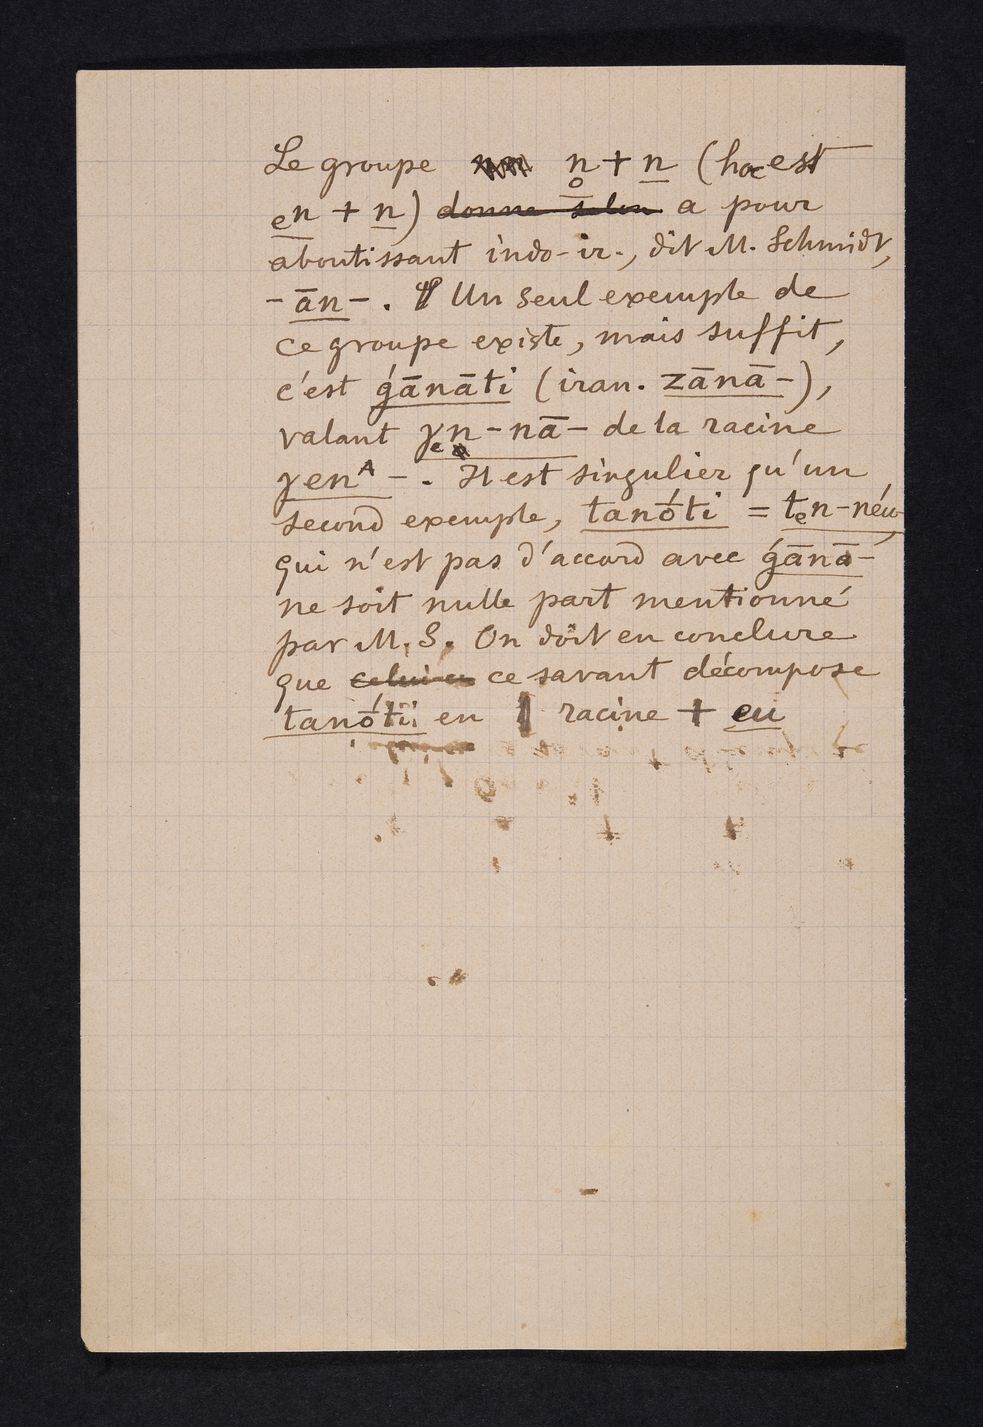 Le groupe n̥ + n (hoc est
ₑn + n) donne selon a pour
aboutissant indo-ir., dit M. Schmidt,
- ān - . Un seul exemple de
ce groupe existe, mais suffit,
c'est ǵānāti (iran. zānā-),
valant γₑn - nā - de la racine
γenᴬ - . Il est singulier qu'un
second exemple, tanóti = tₑn-néu-,
qui n'est pas d'accord avec ǵānā-
ne soit nulle part mentionné
par M. S. On doit en conclure
que celui-ci ce savant décompose
tanóti en racine + eu